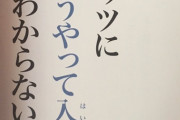 ツに
うやって入
はい
わからない